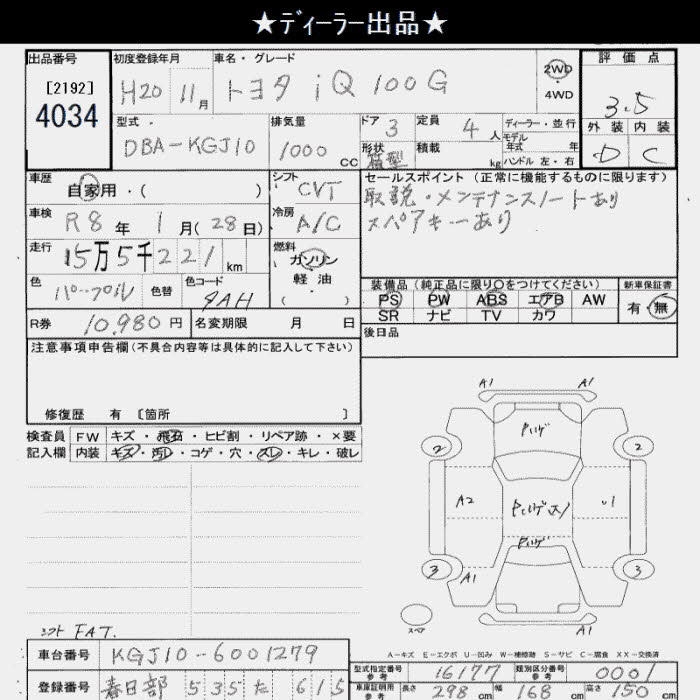 ★ディーラー出品★
出品番号
[2192]
4034
初度登録年月
H20 11月
車名・グレード
トヨタ iQ 100G
2WD
・
4WD
評価点
3.5
外装 内装
D C
型式・
DBA-KGJ10
排気量
1000 cc
ドア 3
定員 4 人
ディーラー・並行
モデル
年式 年
形状 箱型
積載 kg
ハンドル 左・右
車歴
自家用・( )
シフト
CVT
セールスポイント(正常に機能するものに限ります)
取説・メンテナンスノートあり
スペアキーあり
車検
R8年 1月(28日)
冷房
A/C
走行
15万5千221km
燃料
ガソリン
・
軽油
( )
色
パープル
色替
色コード
9AH
装備品(純正品に限り○をつけてください)
PS PW ABS エアB AW
SR ナビ TV カワ
新車保証書
有・無
R券 10,980円
名変期限 月 日
後日品
注意事項申告欄(不具合内容等は具体的に記入して下さい)
修復歴 有 〔箇所 〕
検査員
記入欄
FW キズ・飛石・ヒビ割・リペア跡・×要
内装 キズ・汚レ・コゲ・穴・スレ・キレ・破レ
A1 A1
Pハゲ
2 2
A2 Pハゲ U1
Pハゲ
3 3
A1
A1
スペア
シフト FAT.
A-キズ E-エクボ U-凹み W-補修跡 S-サビ C-腐食 XX-交換済
車台番号 KGJ10-6001279
型式指定番号
参考
16177
類別区分番号
参考
0001
登録番号 春日部 535 た 615
車庫証明用
参考
長さ 298 cm 幅 168 cm 高さ 150 cm